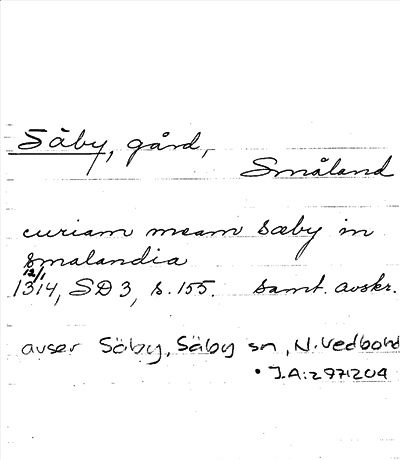 Säby, gård,
Småland
curiam meam sæby in
smalandia
12/1
1314, SD 3, s. 155. samt. avskr.
avser Säby, Säby sn, N. Vedbo hd
• J.A:297 1204